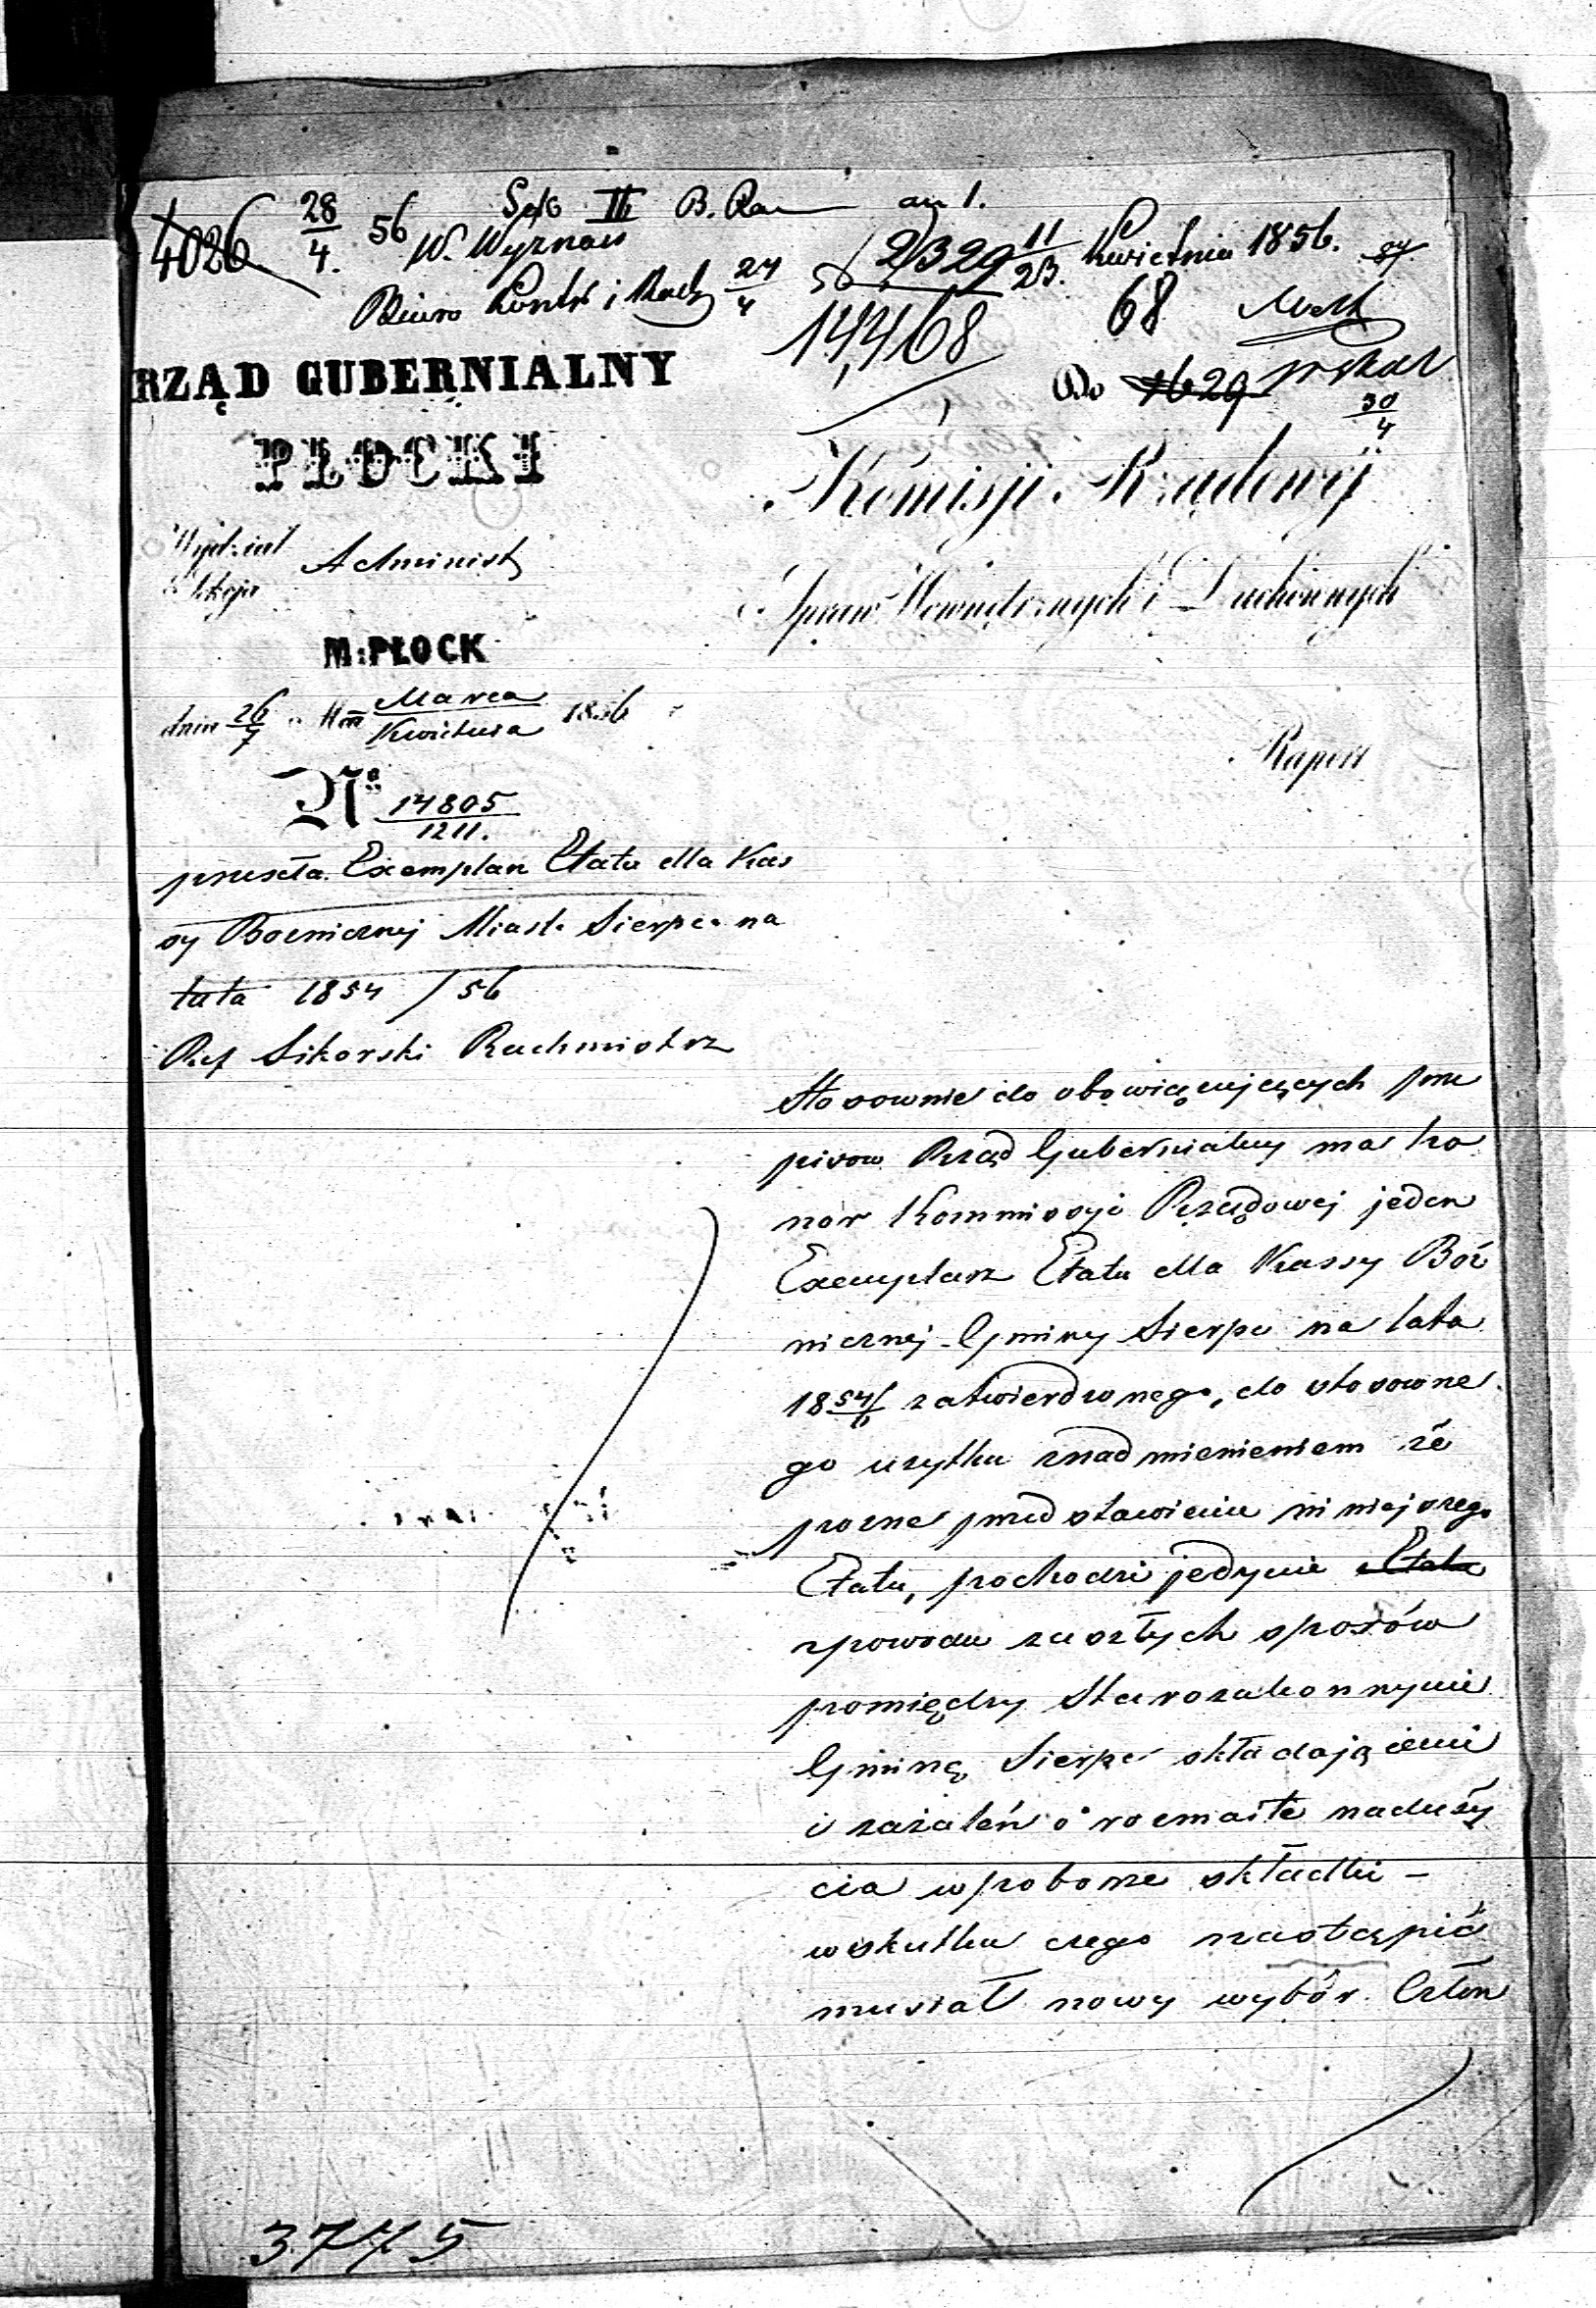 4026 28/4 56 II B. an 1.
W. Wyznań 2329 11/23 Kwietnia 1856.
Biuro Kontr i Rach 24/4 56 14,468 68
RZĄD GUBERNIALNY
PŁOCKI
Wydział Administ
Sekcja
M. PŁOCK
dnia 26/7 Marca/Kwietnia 1856
№ 14805/1211.
przesyła Exemplarz Etatu dla Kas
sy Bożniczney Miasta Sierpca na
lata 1854/56
Ref Sikorski Rachmistrz
Do 1629
30/4
Komisji Rządowéj
Spraw Wewnętrznych i Duchownych
Raport
Stosownie do obowięzujęcych prze
pisow Rząd Gubernialny ma ho
nor Kommissyi Rządowej jeden
Exemplarz Etatu dla Kassy Boż
nicznej Gminy Sierpc na lata
1854/6 zatwierdzonego, do stosowne
go użytku znadmienieniem że
pozne przedstawienie niniejszego
Etatu, pochodzi jedynie Etatu
zpowodu zaszłych sporów
pomiędzy Starozakonnymi
Gminę Sierpc składającemi
i zażaleń o rozmaite naduży
cia wpoborze składki –
wskutku czego nastąpić
musiał nowy wybór Człon
3775